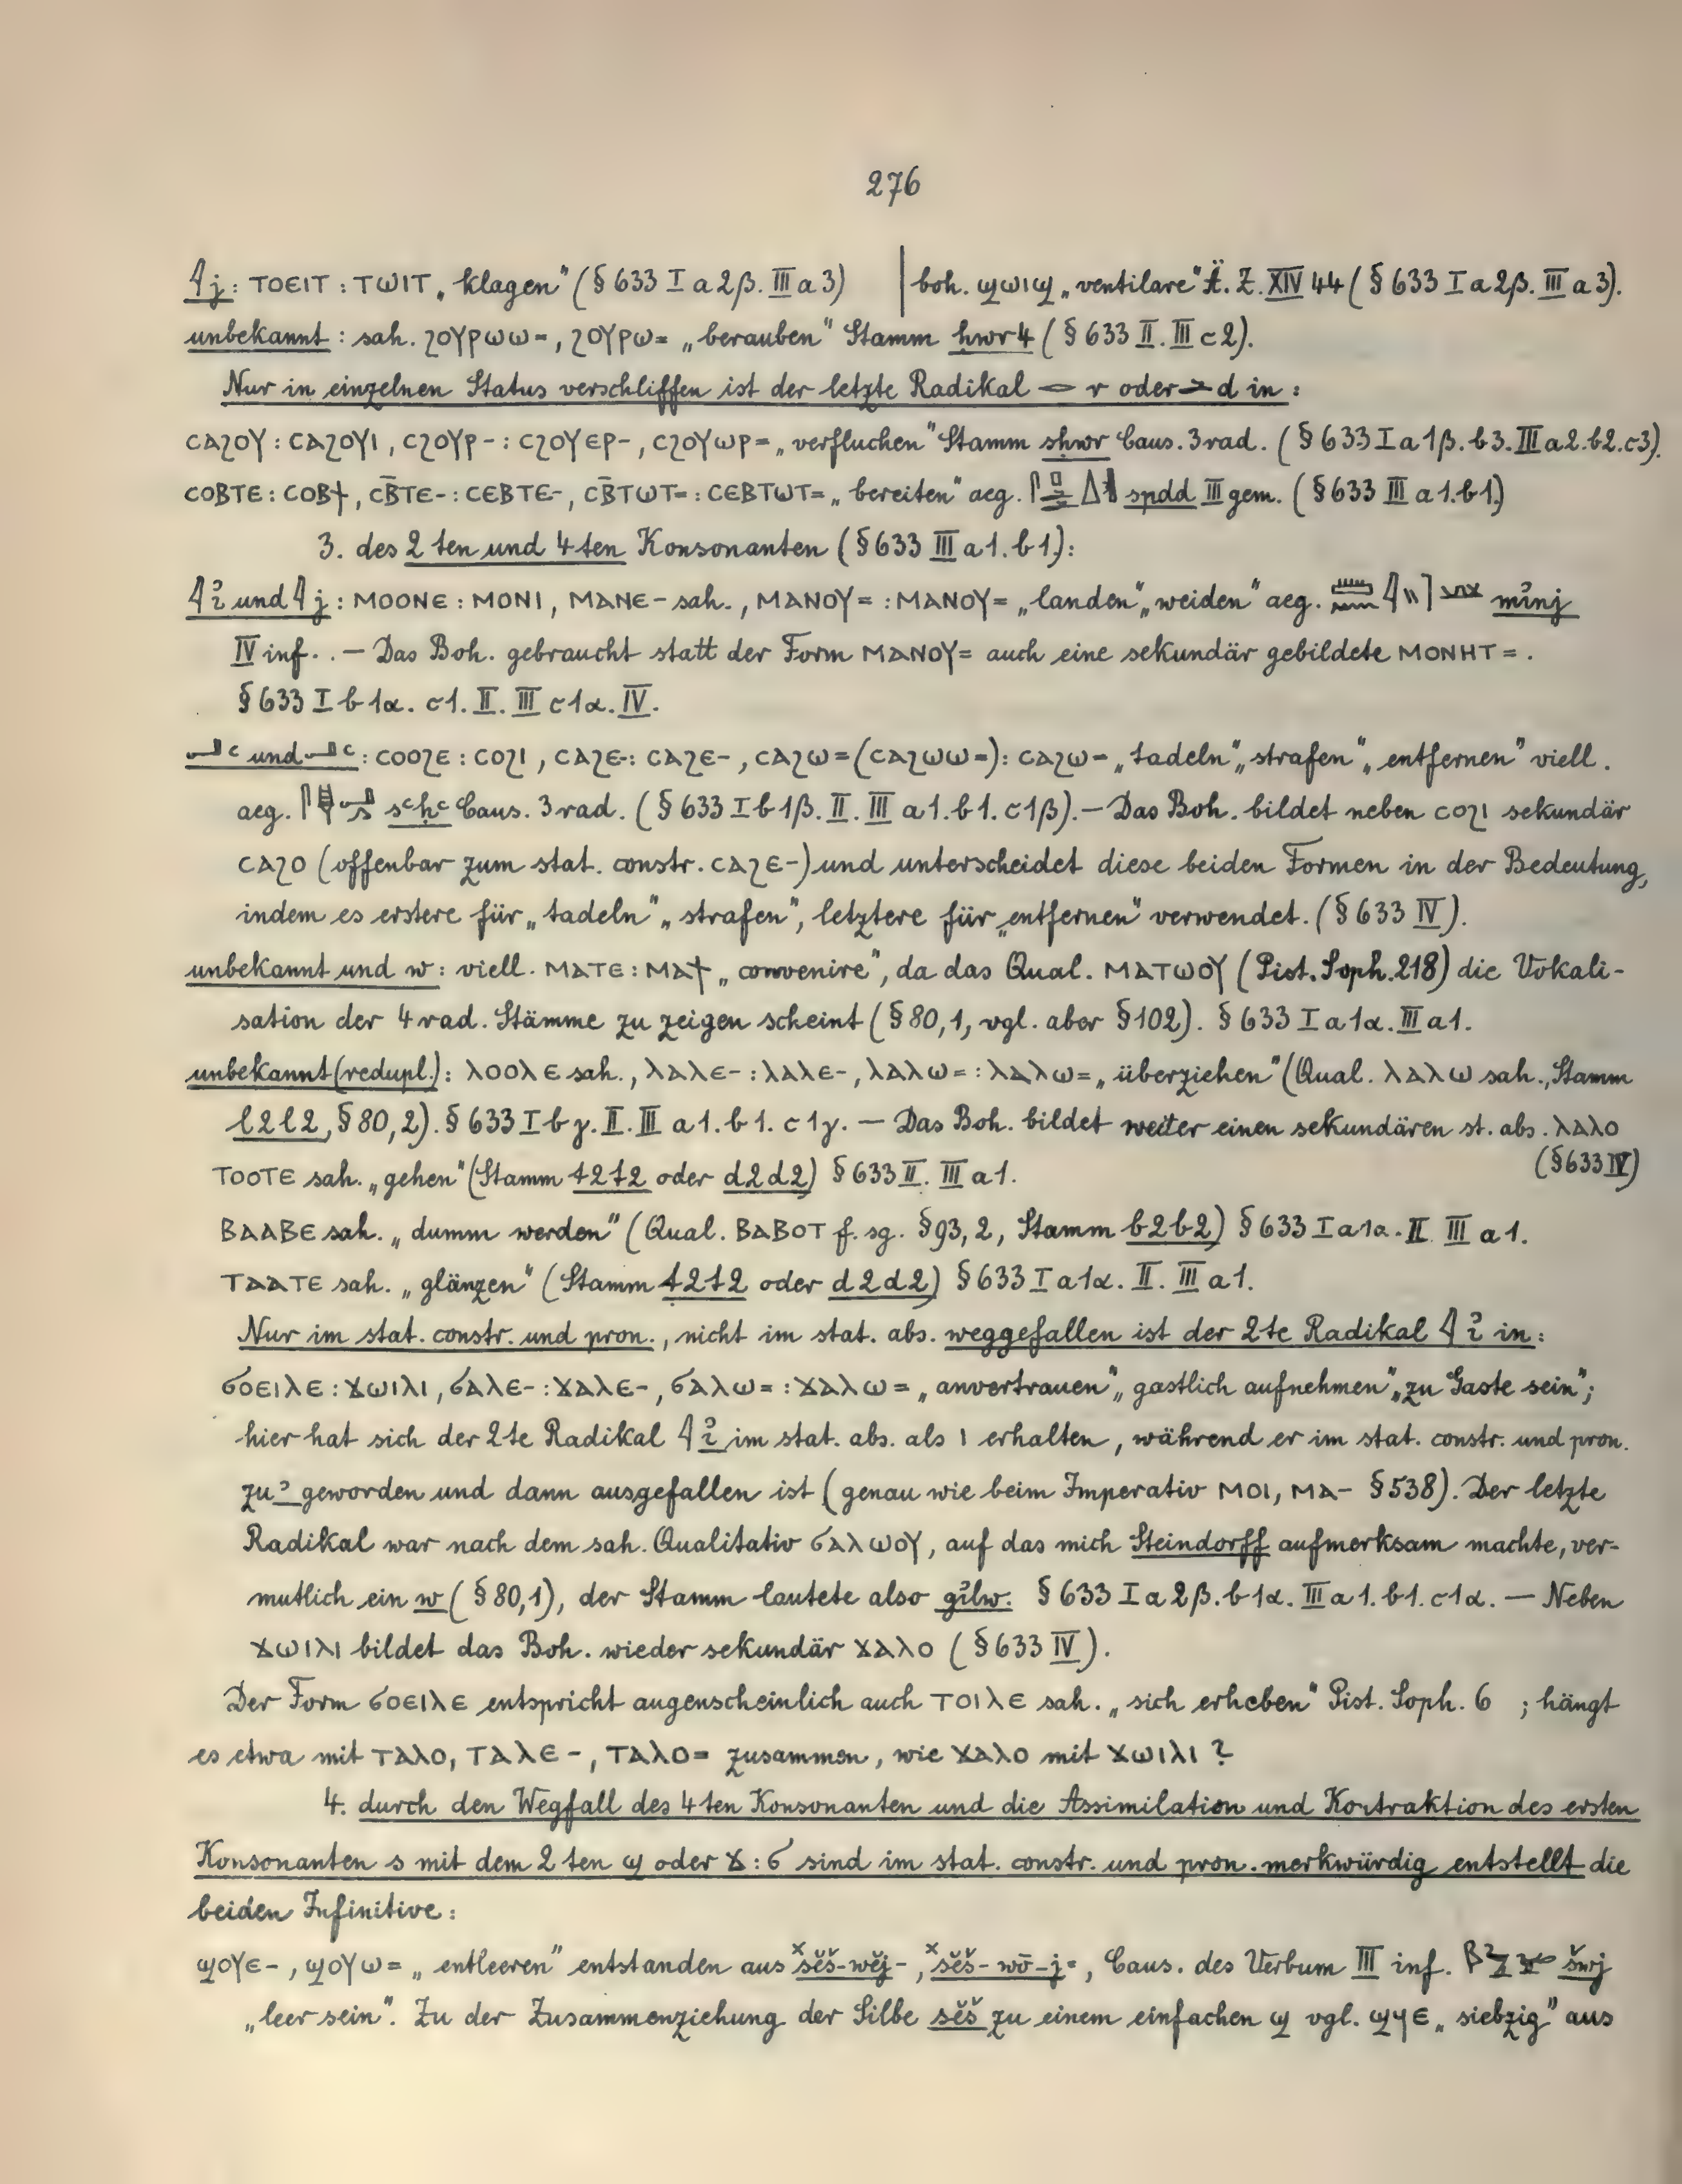 276
𓇋 j: ⲧⲟⲉⲓⲧ : ⲧⲱⲓⲧ „klagen“ (§ 633 I a 2β. III a 3) | boh. ϣⲱⲓϣ „ventilare“ Ä. Z. XIV 44 (§ 633 I a 2β. III a 3).
unbekannt: sah. ϩⲟⲩⲣⲱⲱ=, ϩⲟⲩⲣⲱ= „berauben“ Stamm hwr4 (§ 633 II. III c 2).
Nur in einzelnen Status verschliffen ist der letzte Radikal 𓂋 r oder 𓂧 d in:
ⲥⲁϩⲟⲩ : ⲥⲁϩⲟⲩⲓ, ⲥϩⲟⲩⲣ- : ⲥϩⲟⲩⲉⲣ-, ⲥϩⲟⲩⲱⲣ= „verfluchen“ Stamm sḥwr Caus. 3 rad. (§ 633 I a 1β. b 3. III a 2. b 2. c 3).
ⲥⲟⲃⲧⲉ : ⲥⲟⲃϯ, ⲥⲃ̄ⲧⲉ- : ⲥⲉⲃⲧⲉ-, ⲥⲃ̄ⲧⲱⲧ= : ⲥⲉⲃⲧⲱⲧ= „bereiten“ aeg. spdd III gem. (§ 633 III a 1. b 1.)
3. des 2ten und 4ten Konsonanten (§ 633 III a 1. b 1.):
𓇋 ꞽ und 𓇋 j: ⲙⲟⲟⲛⲉ : ⲙⲟⲛⲓ, ⲙⲁⲛⲉ- sah., ⲙⲁⲛⲟⲩ= : ⲙⲁⲛⲟⲩ= „landen“ „weiden“ aeg. mꞽnj
IV inf. . — Das Boh. gebraucht statt der Form ⲙⲁⲛⲟⲩ= auch eine sekundär gebildete ⲙⲟⲛⲏⲧ= .
§ 633 I b 1α. c 1. II. III c 1α. IV.
𓂝 ꜥ und 𓂝 ꜥ: ⲥⲟⲟϩⲉ : ⲥⲟϩⲓ, ⲥⲁϩⲉ- : ⲥⲁϩⲉ-, ⲥⲁϩⲱ= (ⲥⲁϩⲱⲱ=) : ⲥⲁϩⲱ= „tadeln“ „strafen“ „entfernen“ viell.
aeg. sꜥḥꜥ Caus. 3 rad. (§ 633 I b 1β. II. III a 1. b 1. c 1β). — Das Boh. bildet neben ⲥⲟϩⲓ sekundär
ⲥⲁϩⲟ (offenbar zum stat. constr. ⲥⲁϩⲉ-) und unterscheidet diese beiden Formen in der Bedeutung,
indem es erstere für „tadeln“ „strafen“, letztere für „entfernen“ verwendet. (§ 633 IV).
unbekannt und w: viell. ⲙⲁⲧⲉ : ⲙⲁϯ „convenire“, da das Qual. ⲙⲁⲧⲱⲟⲩ (Pist. Soph. 218) die Vokali-
sation der 4 rad. Stämme zu zeigen scheint (§ 80,1, vgl. aber § 102). § 633 I a 1α. III a 1.
unbekannt (redupl.): ⲗⲟⲟⲗⲉ sah., ⲗⲁⲗⲉ- : ⲗⲁⲗⲉ-, ⲗⲁⲗⲱ= : ⲗⲁⲗⲱ= „überziehen“ (Qual. ⲗⲁⲗⲱ sah., Stamm
l2l2, § 80, 2). § 633 I b γ. II. III a 1. b 1. c 1γ. — Das Boh. bildet weiter einen sekundären st. abs. ⲗⲁⲗⲟ
(§ 633 IV)
ⲧⲟⲟⲧⲉ sah. „gehen“ (Stamm t2t2 oder d2d2) § 633 II. III a 1.
ⲃⲁⲁⲃⲉ sah. „dumm werden“ (Qual. ⲃⲁⲃⲟⲧ f. sg. § 93, 2, Stamm b2b2) § 633 I a 1α. II. III a 1.
ⲧⲁⲁⲧⲉ sah. „glänzen“ (Stamm t2t2 oder d2d2) § 633 I a 1α. II. III a 1.
Nur im stat. constr. und pron., nicht im stat. abs. weggefallen ist der 2te Radikal 𓇋 ꞽ in:
ϭⲟⲉⲓⲗⲉ : ϫⲱⲓⲗⲓ, ϭⲁⲗⲉ- : ϫⲁⲗⲉ-, ϭⲁⲗⲱ= : ϫⲁⲗⲱ= „anvertrauen“ „gastlich aufnehmen“ „zu Gaste sein“;
hier hat sich der 2te Radikal 𓇋 ꞽ im stat. abs. als ⲓ erhalten, während er im stat. constr. und pron.
zu ʾ geworden und dann ausgefallen ist (genau wie beim Imperativ ⲙⲟⲓ, ⲙⲁ- § 538). Der letzte
Radikal war nach dem sah. Qualitativ ϭⲁⲗⲱⲟⲩ, auf das mich Steindorff aufmerksam machte, ver-
mutlich ein w (§ 80,1), der Stamm lautete also gꞽlw. § 633 I a 2β. b 1α. III a 1. b 1. c 1α. — Neben
ϫⲱⲓⲗⲓ bildet das Boh. wieder sekundär ϫⲁⲗⲟ (§ 633 IV).
Der Form ϭⲟⲉⲓⲗⲉ entspricht augenscheinlich auch ⲧⲟⲓⲗⲉ sah. „sich erheben“ Pist. Soph. 6 ; hängt
es etwa mit ⲧⲁⲗⲟ, ⲧⲁⲗⲉ-, ⲧⲁⲗⲟ= zusammen, wie ϫⲁⲗⲟ mit ϫⲱⲓⲗⲓ ?
4. durch den Wegfall des 4ten Konsonanten und die Assimilation und Kontraktion des ersten
Konsonanten s mit dem 2ten ϣ oder ϫ : ϭ sind im stat. constr. und pron. merkwürdig entstellt die
beiden Infinitive:
ϣⲟⲩⲉ-, ϣⲟⲩⲱ= „entleeren“ entstanden aus ˣsĕš-wĕj-, ˣsĕš-wō-j=, Caus. des Verbum III inf. šwj
„leer sein“. Zu der Zusammenziehung der Silbe sĕš zu einem einfachen ϣ vgl. ϣϥⲉ „siebzig“ aus